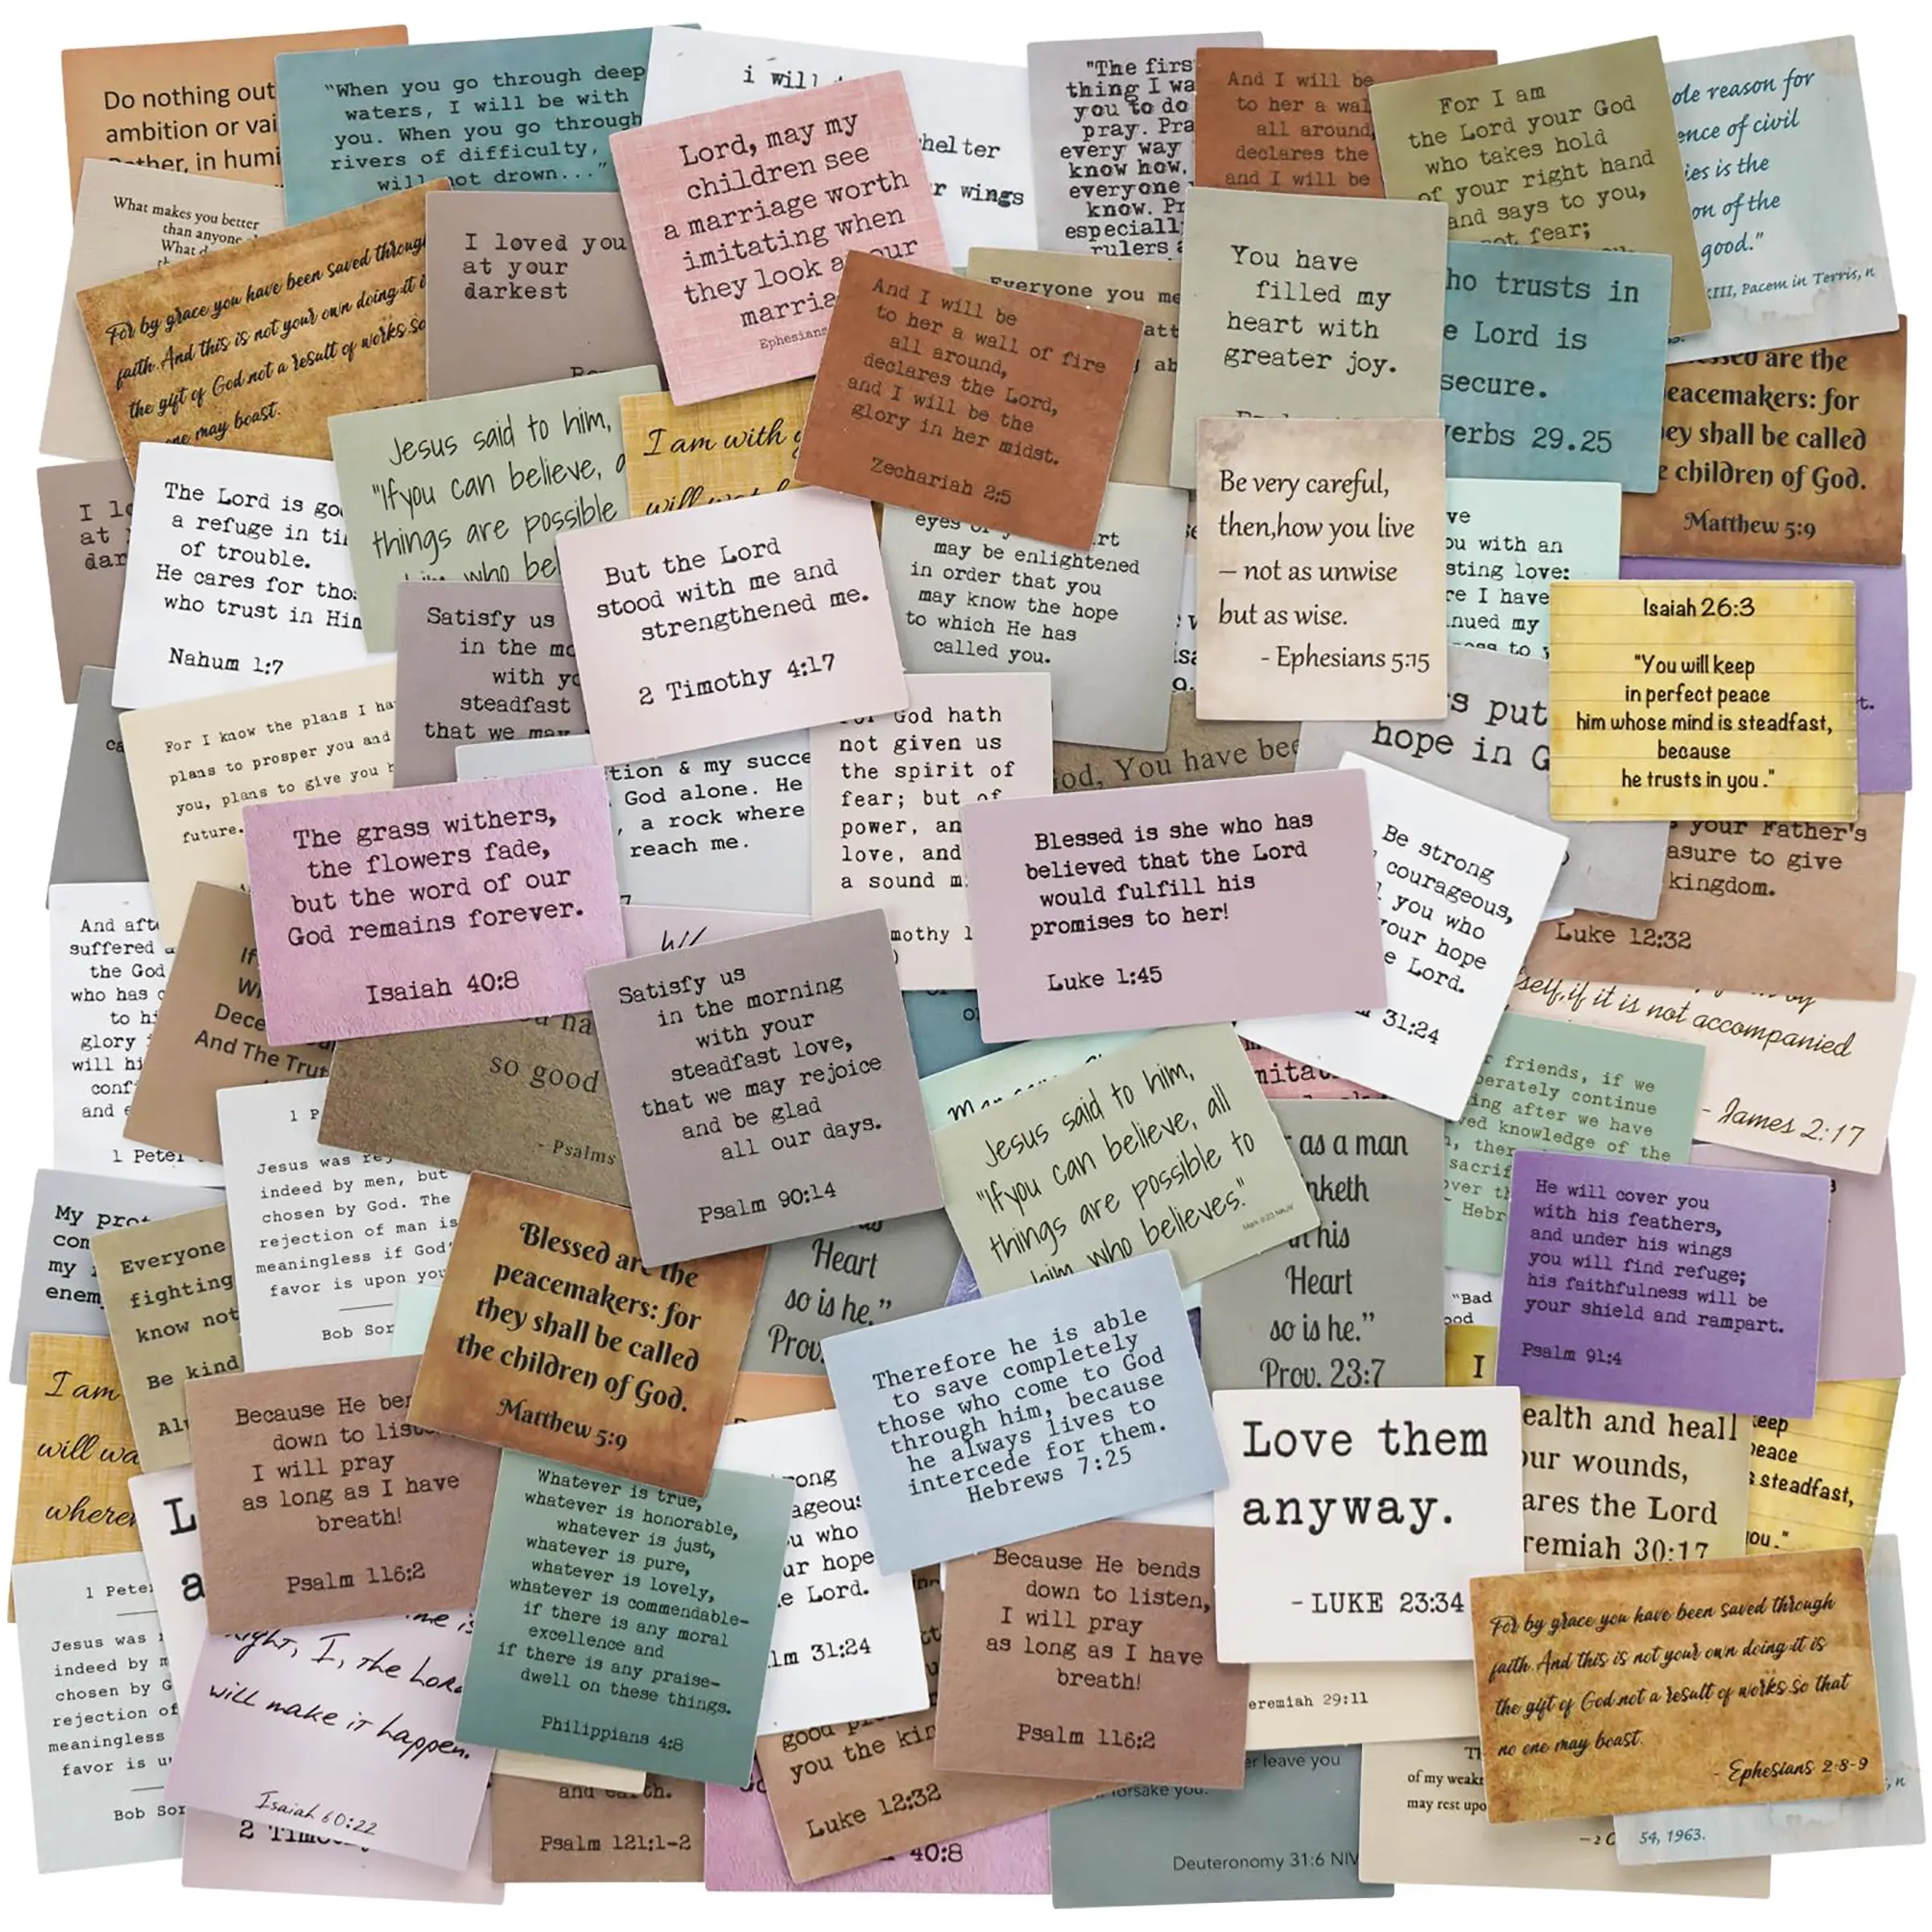 Do nothing out
ambition or vai
Rather, in humi
"When you go through deep
waters, I will be with
you. When you go through
rivers of difficulty,
will not drown..."
i will
helter
r wings
"The firs
thing I wa
you to do
pray. Pra
every way
know how,
everyone
know. Pr
especiall
rulers a
And I will be
to her a wal
all around,
declares the
and I will be
For I am
the Lord your God
who takes hold
of your right hand
and says to you,
not fear;
ole reason for
ence of civil
ies is the
on of the
good."
XIII, Pacem in Terris, n
What makes you better
than anyone
What d
For by grace you have been saved throug
faith.And this is not your own doing:it i
the gift of God.not a result of works.so
one may boast.
I loved you
at your
darkest
Lord, may my
children see
a marriage worth
imitating when
they look a our
marria
Ephesians
And I will be
to her a wall of fire
all around,
declares the Lord,
and I will be the
glory in her midst.
Zechariah 2:5
Everyone you me
att
ab
You have
filled my
heart with
greater joy.
ho trusts in
e Lord is
secure.
verbs 29.25
ssed are the
eacemakers: for
ey shall be called
e children of God.
Matthew 5:9
I lo
at
dar
The Lord is go
a refuge in ti
of trouble.
He cares for tho
who trust in Him
Nahum 1:7
Jesus said to him,
"Ifyou can believe, a
things are possible
him who be
I am with y
will watch
But the Lord
stood with me and
strengthened me.
2 Timothy 4:17
eyes of y rt
may be enlightened
in order that you
may know the hope
to which He has
called you.
Be very careful,
then,how you live
– not as unwise
but as wise.
- Ephesians 5:15
ve
ou with an
sting love:
re I have
nued my
ness to y
Isaiah 26:3
"You will keep
in perfect peace
him whose mind is steadfast,
because
he trusts in you ."
t.
Satisfy us
in the mo
with yo
steadfast
that we may
ca
For I know the plans I ha
plans to prosper you and
you, plans to give you h
future.
The grass withers,
the flowers fade,
but the word of our
God remains forever.
Isaiah 40:8
tion & my succe
God alone. He
, a rock where
reach me.
For God hath
not given us
the spirit of
fear; but of
power, an
love, and
a sound m
mothy 1
God, You have bee
s put
hope in G
Blessed is she who has
believed that the Lord
would fulfill his
promises to her!
Luke 1:45
Be strong
courageous,
l you who
your hope
e Lord.
31:24
your Father's
asure to give
kingdom.
Luke 12:32
And afte
suffered a
the God
who has c
to hi
glory
will hi
conf
and e
1 Peter
If
Wi
Dece
And The Trut
u ha
so good
- Psalms
Satisfy us
in the morning
with your
steadfast love,
that we may rejoice
and be glad
all our days.
Psalm 90:14
Jesus said to him,
"Ifyou can believe, all
things are possible to
him who believes."
Mark 9:23 NKJV
mita
self,if it is not accompanied
- James 2:17
r friends, if we
berately continue
ing after we have
ved knowledge of the
, ther
sacrif
over th
Hebr
1 P
Jesus was rej
indeed by men, but
chosen by God. The
rejection of man is
meaningless if God'
favor is upon you
Bob Sor
My prot
com
my
enem
Everyone
fighting
know not
Be kind
Alw
Blessed are the
peacemakers: for
they shall be called
the children of God.
Matthew 5:9
as
Heart
so is he."
Prov.
r as a man
nketh
in his
Heart
so is he."
Prov. 23:7
"Bad
ood
He will cover you
with his feathers,
and under his wings
you will find refuge;
his faithfulness will be
your shield and rampart.
Psalm 91:4
Therefore he is able
to save completely
those who come to God
through him, because
he always lives to
intercede for them.
Hebrews 7:25
I am
will wa
wherev
L
a
Because He ben
down to liste
I will pray
as long as I have
breath!
Psalm 116:2
Whatever is true,
whatever is honorable,
whatever is just,
whatever is pure,
whatever is lovely,
whatever is commendable-
if there is any moral
excellence and
if there is any praise-
dwell on these things.
Philippians 4:8
rong
ageous
u who
ur hope
e Lord.
lm 31:24
Love them
anyway.
- LUKE 23:34
I
ealth and heall
our wounds,
ares the Lord
remiah 30:17
keep
peace
s steadfast,
you."
Because He bends
down to listen,
I will pray
as long as I have
breath!
Psalm 116:2
For by grace you have been saved through
faith.And this is not your own doing:it is
the gift of God.not a result of works.so that
no one may boast.
- Ephesians 2:8-9
1 Pete
Jesus was
indeed by m
chosen by G
rejection of
meaningless
favor is u
Bob Sor
me is
right, I, the Lord
will make it happen.
Isaiah 60:22
2 Timo
and earth.
Psalm 121:1-2
good pl
you the kin
Luke 12:32
40:8
eremiah 29:11
er leave you
forsake you.
Deuteronomy 31:6 NIV
of my weak
may rest upo
– 2 C
54, 1963.
, n